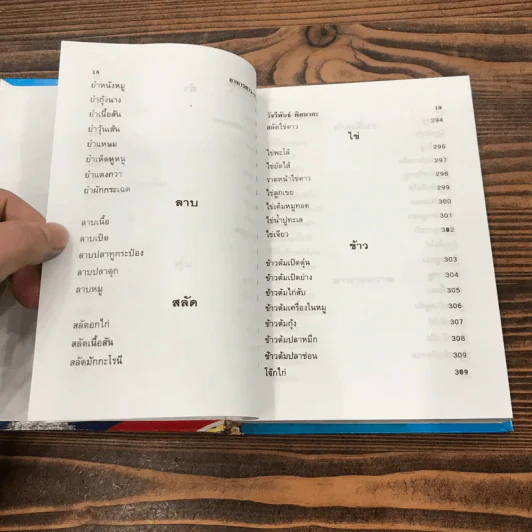 18
ยำหนังหมู
ยำกุ้งนาง
ยำเนื้อสัน
ยำวุ้นเส้น
ยำแหนม
ยำเห็ดหูหนู
ยำแตงกวา
ยำผักกระเฉด
ลาบ
ลาบเนื้อ
ลาบเป็ด
ลาบปลาทูกระป๋อง
ลาบปลาดุก
ลาบหมู
สลัด
สลัดอกไก่
สลัดเนื้อสัน
สลัดมักกะโรนี
19
สลัดไข่ดาว 294
ไข่
ไข่พะโล้ 296
ไข่ยัดไส้ 297
ราดหน้าไข่ดาว 298
ไข่ลูกเขย 299
ไข่เค็มหมูทอด 300
ไข่น้ำปูทะเล 301
ไข่เจียว 302
ข้าว
ข้าวต้มเป็ดตุ๋น 303
ข้าวต้มเป็ดย่าง 304
ข้าวต้มไก่สับ 305
ข้าวต้มเครื่องในหมู 306
ข้าวต้มกุ้ง 307
ข้าวต้มปลาหมึก 308
ข้าวต้มปลาช่อน 309
โจ๊กไก่ 309